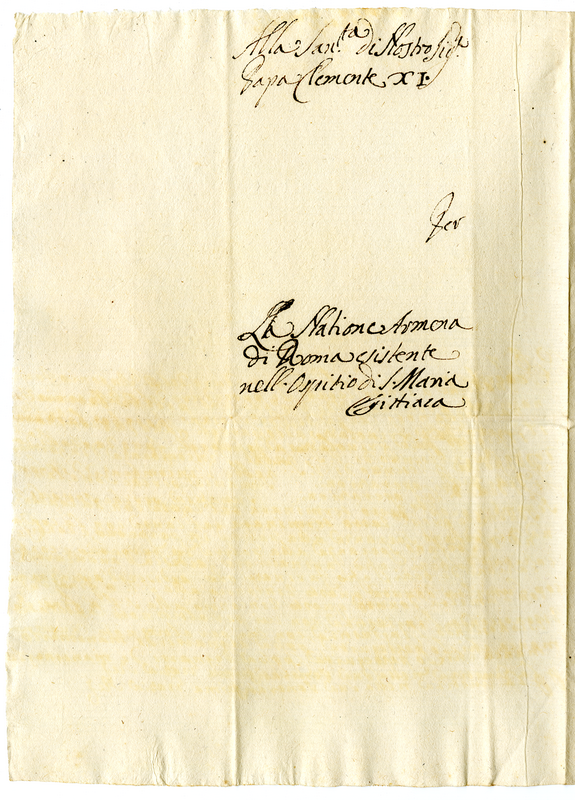 Alla San.ta di Nostro Sig.r
Papa Clemente XI.
Per
La Natione Armena
di Roma esistente
nell. Ospitio di S. Maria
Egittiaca